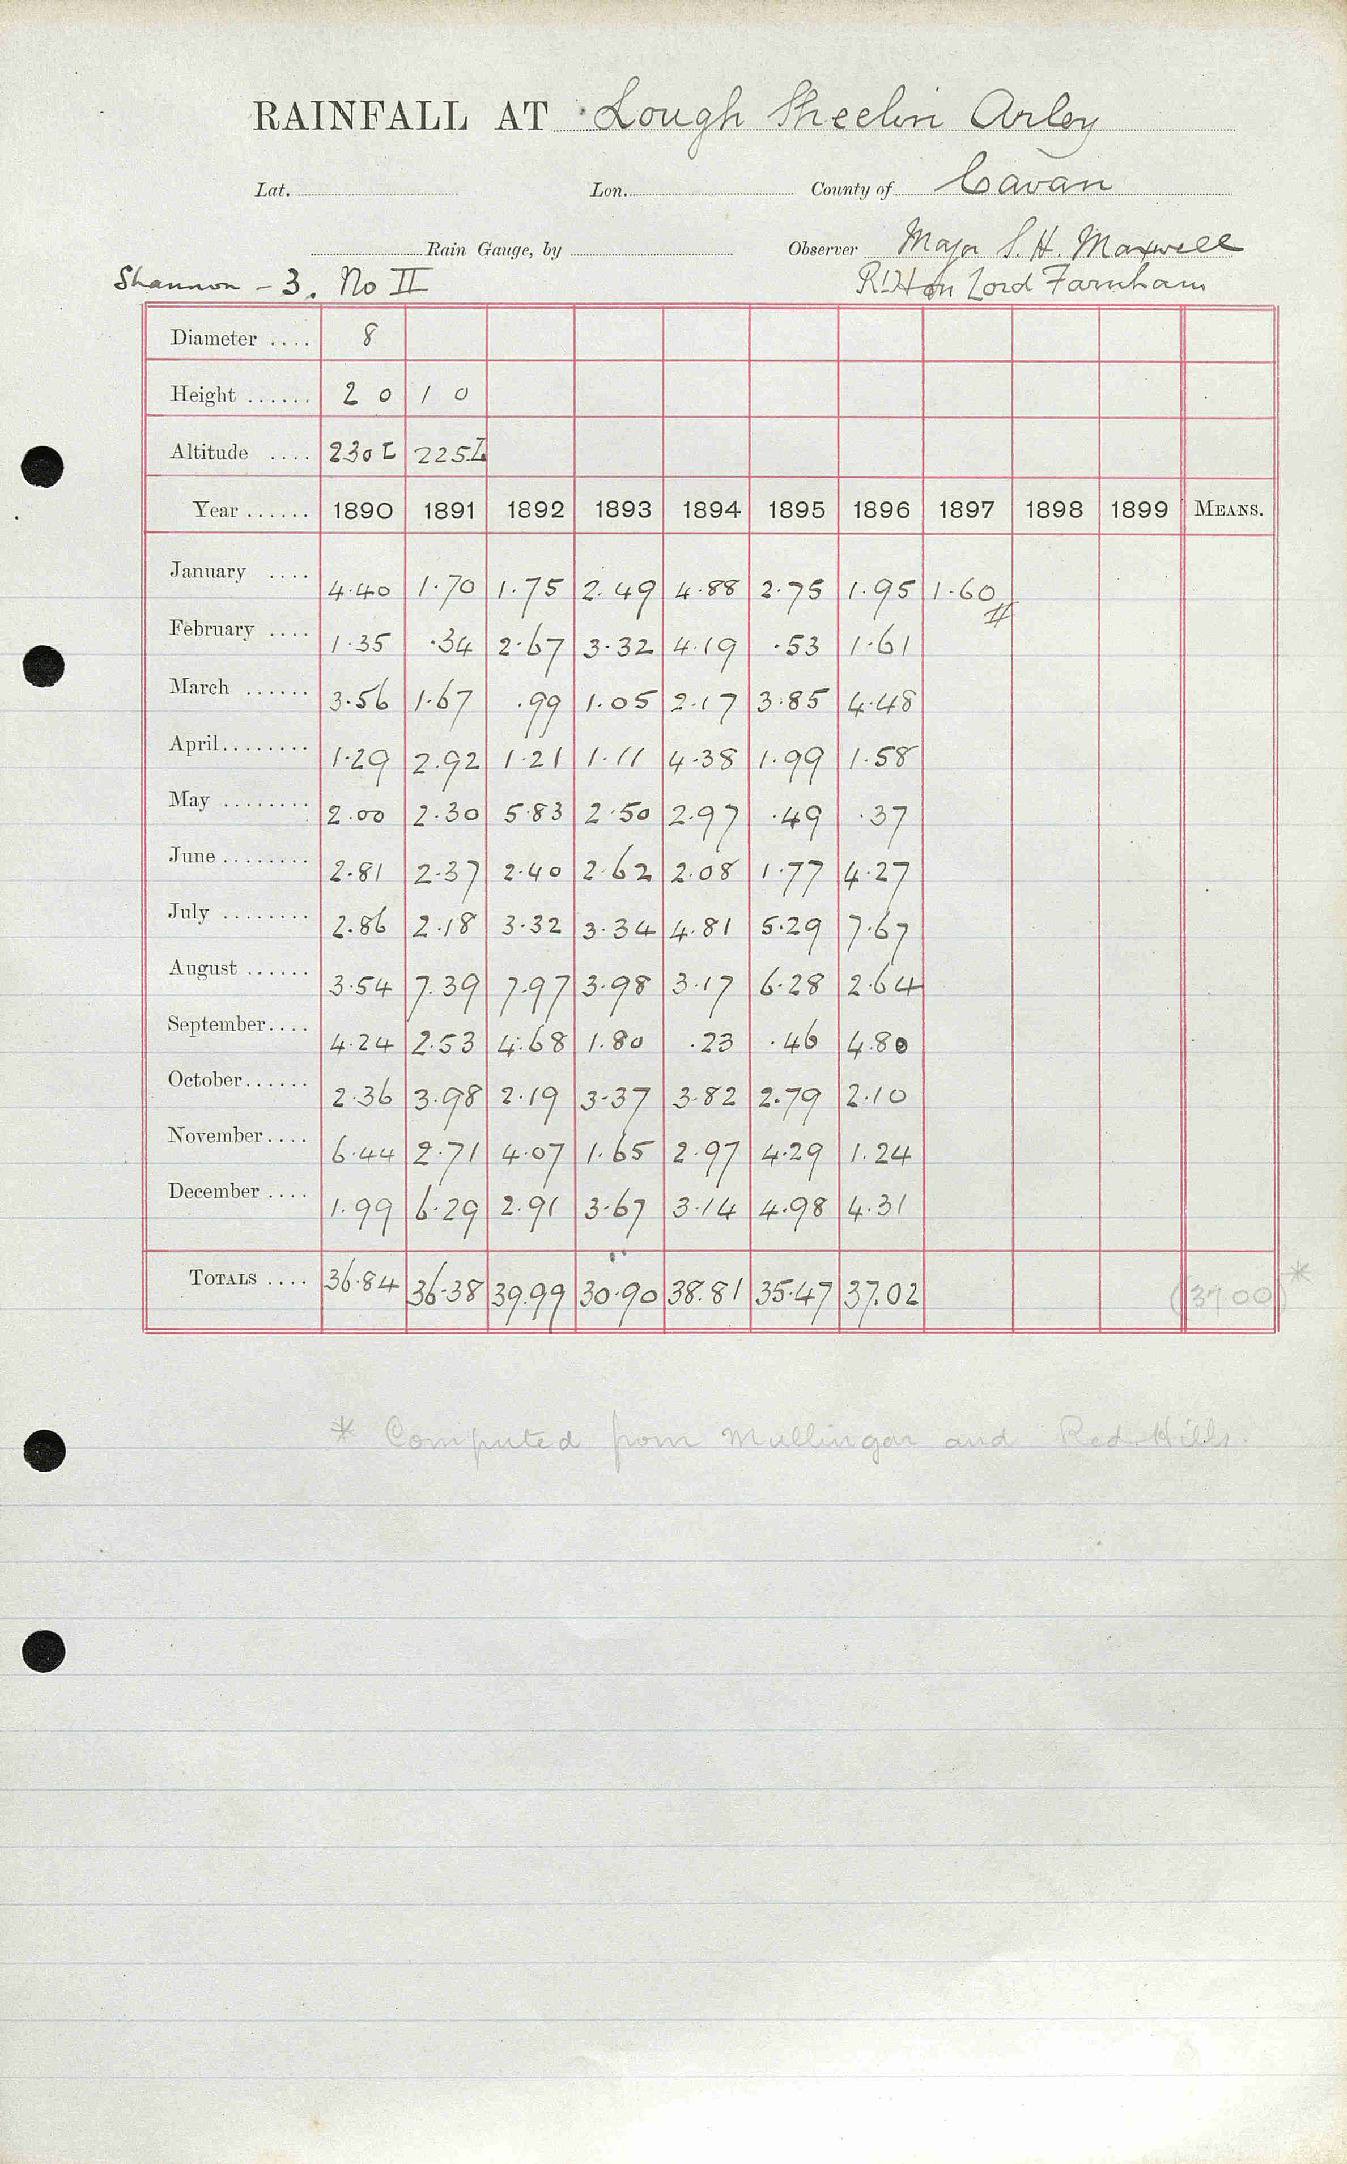 RAINFALL AT Lough Sheelin Arley
Lat. Lon. County of Cavan
Rain Gauge, by Observer Major S. H. Maxwell
Shannon - 3. No II Rt Hon Lord Farnham
Diameter .... 8
Height ...... 2 0 1 0
Altitude .... 230 L 225 L
Year ...... 1890 1891 1892 1893 1894 1895 1896 1897 1898 1899 MEANS.
January .... 4.40 1.70 1.75 2.49 4.88 2.75 1.95 1.60 #
February .... 1.35 .34 2.67 3.32 4.19 .53 1.61
March ...... 3.56 1.67 .99 1.05 2.17 3.85 4.48
April........ 1.29 2.92 1.21 1.11 4.38 1.99 1.58
May ........ 2.00 2.30 5.83 2.50 2.97 .49 .37
June ........ 2.81 2.37 2.40 2.62 2.08 1.77 4.27
July ........ 2.86 2.18 3.32 3.34 4.81 5.29 7.67
August ...... 3.54 7.39 7.97 3.98 3.17 6.28 2.64
September.... 4.24 2.53 4.68 1.80 .23 .46 4.80
October...... 2.36 3.98 2.19 3.37 3.82 2.79 2.10
November.... 6.44 2.71 4.07 1.65 2.97 4.29 1.24
December .... 1.99 6.29 2.91 3.67 3.14 4.98 4.31
TOTALS .... 36.84 36.38 39.99 30.90 38.81 35.47 37.02 (37 00) *
* Computed from Mullingar and Red Hills.